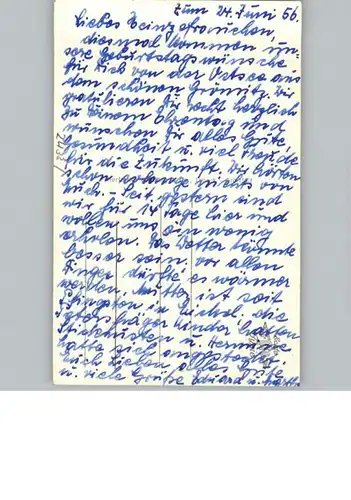 Zum 24. Juni 56.
Liebes Geburtstags
diesmal kommen un-
sere Geburtstagswünsche
für Dich von der Ostsee aus
dem schönen Grömitz. Wir
gratulieren Dir recht herzlich
zu Deinem Ehrentag und
wünschen Dir alles Gute
Gesundheit u. viel Freude
für die Zukunft. Wir hörten
schon so lange nichts von
Euch. - Seit gestern sind
wir für 14 Tage hier und
wollen uns ein wenig
erholen. Das Wetter könnte
besser sein, vor allen
Dingen dürfte es wärmer
werden. Mutter ist seit
Pfingsten in
Kinder hatten
u. Hermine
hatte sich
Euch Lieben alles Gute
u. viele Grüße Eduard u.
2438/